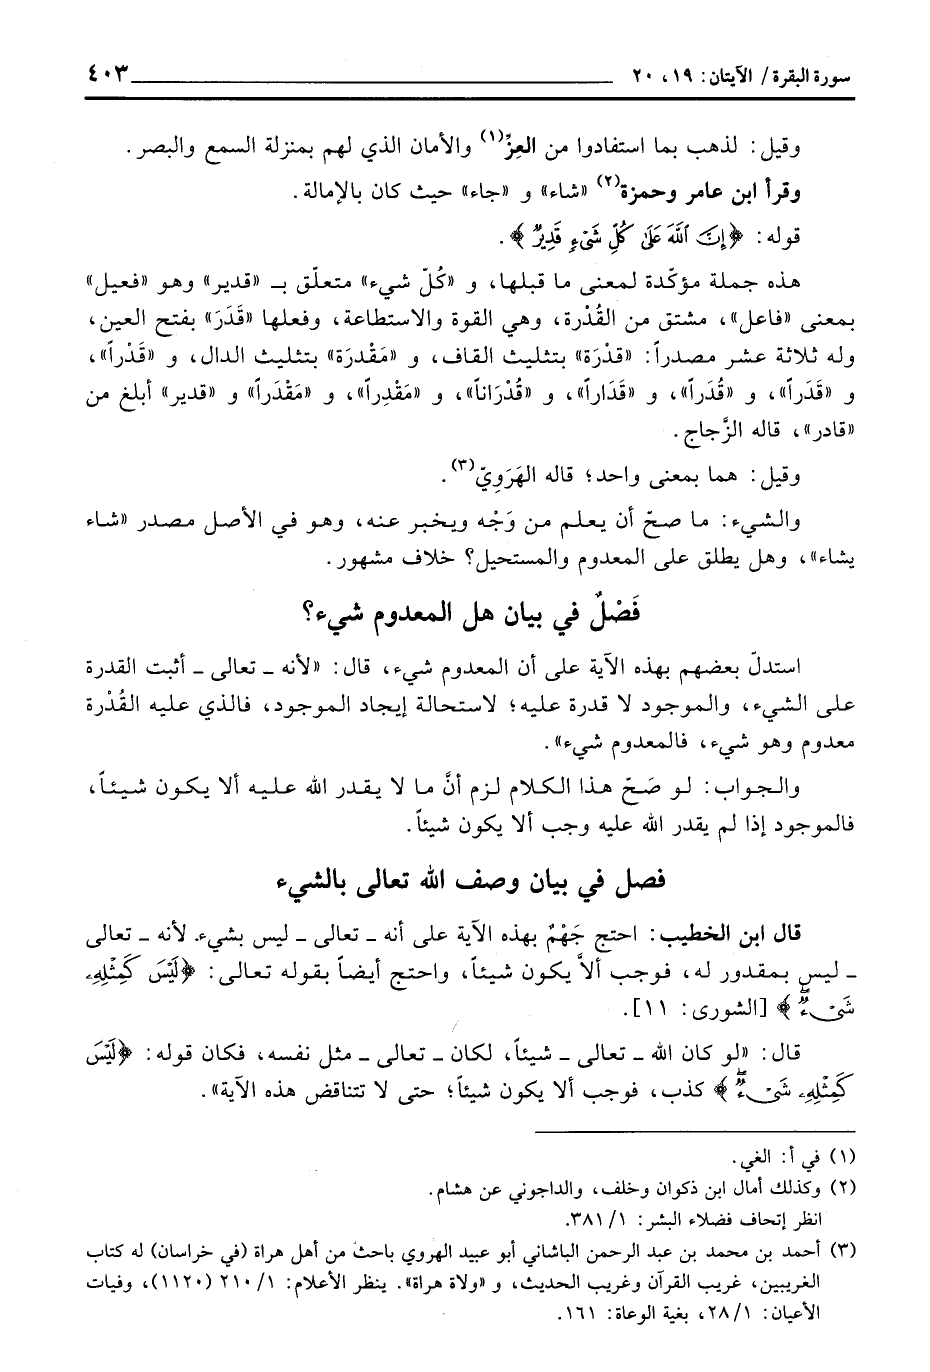 سورة البقرة/ الآيتان: ١٩، ٢٠ ٤٠٣
وقيل: لذهب بما استفادوا من العِزِّ(١) والأمان الذي لهم بمنزلة السمع والبصر.
وقرأ ابن عامر وحمزة(٢) «شاء» و «جاء» حيث كان بالإمالة.
قوله: ﴿إِنَّ ٱللَّهَ عَلَىٰ كُلِّ شَىْءٍ قَدِيرٌ﴾.
هذه جملة مؤكّدة لمعنى ما قبلها، و «كُلّ شيء» متعلّق بـ «قدير» وهو «فعيل»
بمعنى «فاعل»، مشتق من القُدْرة، وهي القوة والاستطاعة، وفعلها «قَدَرَ» بفتح العين،
وله ثلاثة عشر مصدراً: «قدْرَة» بتثليث القاف، و «مَقْدرَة» بتثليث الدال، و «قَدْراً»،
و «قَدَراً»، و «قُدَراً»، و «قَدَاراً»، و «قُدْرَاناً»، و «مَقْدِراً»، و «مَقْدَراً» و «قدير» أبلغ من
«قادر»، قاله الزَّجاج.
وقيل: هما بمعنى واحد؛ قاله الهَرَوِيّ(٣).
والشيء: ما صحّ أن يعلم من وَجْه ويخبر عنه، وهو في الأصل مصدر «شاء
يشاء»، وهل يطلق على المعدوم والمستحيل؟ خلاف مشهور.
فَصْلٌ في بيان هل المعدوم شيء؟
استدلّ بعضهم بهذه الآية على أن المعدوم شيء، قال: «لأنه ـ تعالى ـ أثبت القدرة
على الشيء، والموجود لا قدرة عليه؛ لاستحالة إيجاد الموجود، فالذي عليه القُدْرة
معدوم وهو شيء، فالمعدوم شيء».
والجواب: لو صَحّ هذا الكلام لزم أنَّ ما لا يقدر الله عليه ألا يكون شيئاً،
فالموجود إذا لم يقدر الله عليه وجب ألا يكون شيئاً.
فصل في بيان وصف الله تعالى بالشيء
قال ابن الخطيب: احتج جَهْمٌ بهذه الآية على أنه ـ تعالى ـ ليس بشيء. لأنه ـ تعالى
ـ ليس بمقدور له، فوجب ألاَّ يكون شيئاً، واحتج أيضاً بقوله تعالى: ﴿لَيْسَ كَمِثْلِهِۦ
شَىْءٌ﴾ [الشورى: ١١].
قال: «لو كان الله ـ تعالى ـ شيئاً، لكان ـ تعالى ـ مثل نفسه، فكان قوله: ﴿لَيْسَ
كَمِثْلِهِۦ شَىْءٌ﴾ كذب، فوجب ألا يكون شيئاً؛ حتى لا تتناقض هذه الآية».
(١) في أ: الغي.
(٢) وكذلك أمال ابن ذكوان وخلف، والداجوني عن هشام.
انظر إتحاف فضلاء البشر: ١/ ٣٨١.
(٣) أحمد بن محمد بن عبد الرحمن الباشاني أبو عبيد الهروي باحث من أهل هراة (في خراسان) له كتاب
الغريبين، غريب القرآن وغريب الحديث، و «ولاة هراة». ينظر الأعلام: ١/ ٢١٠ (١١٢٠)، وفيات
الأعيان: ١/ ٢٨، بغية الوعاة: ١٦١.